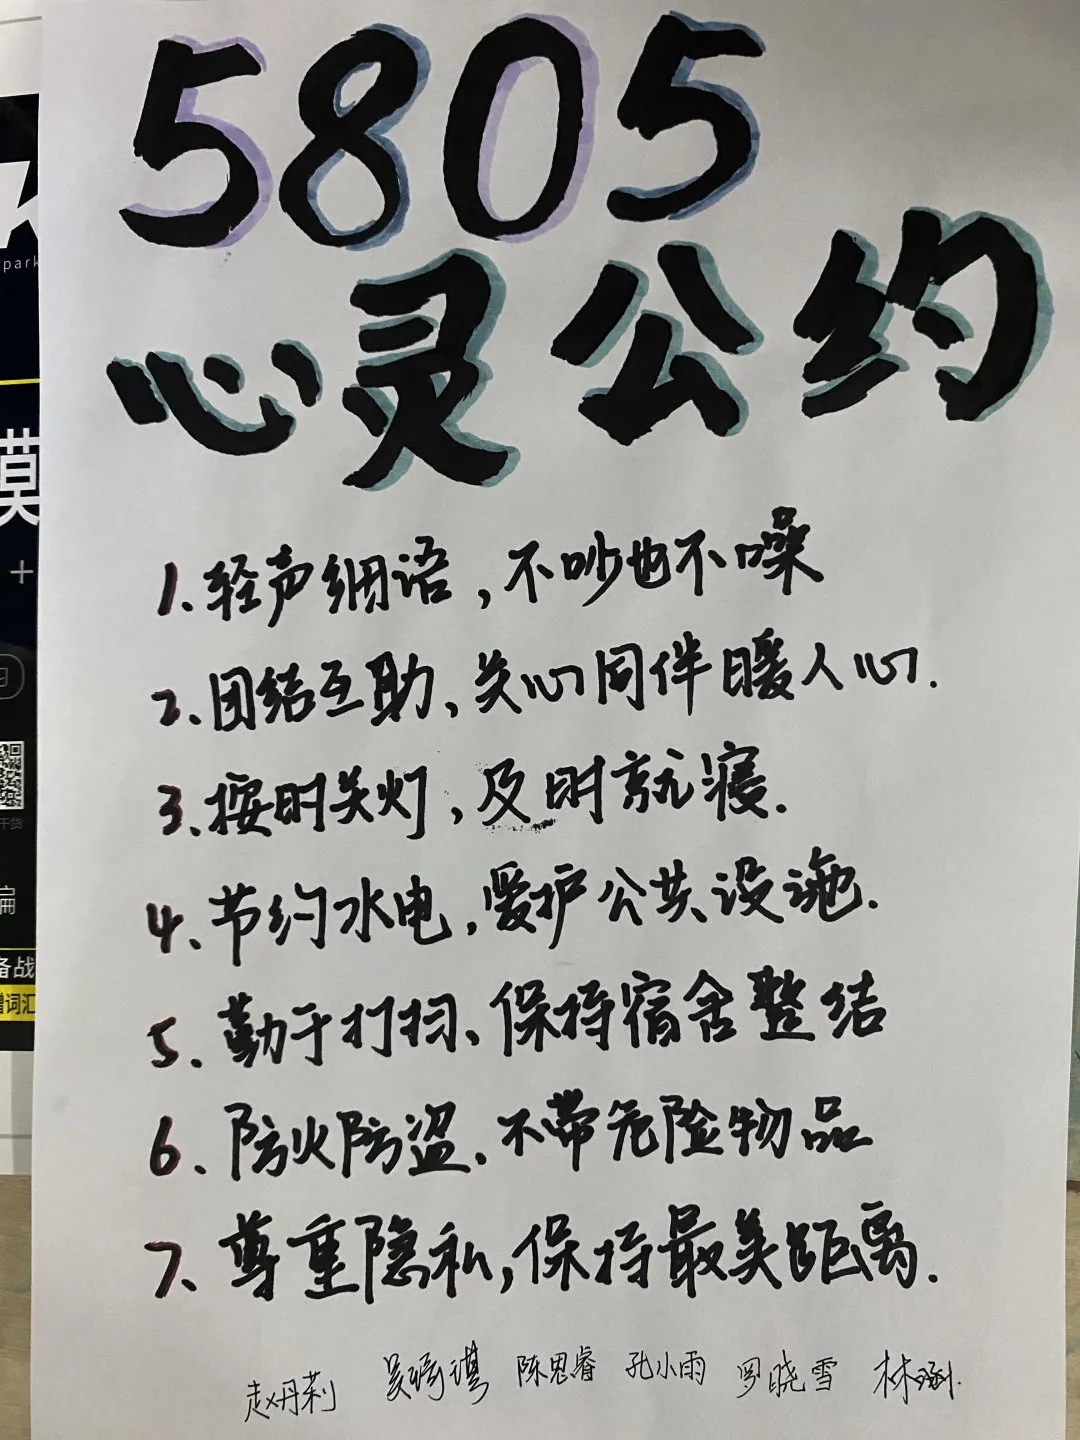 5805
心灵公约
1.轻声细语,不吵也不噪
2.团结互助、关心同伴暖人心.
3.按时关灯,及时就寝.
4.节约水电,爱护公共设施.
5.勤于打扫、保持宿舍整结
6、防火防盗、不带危险物品
7、尊重隐私,保持最美距离.
赵丹莉 吴琦琪 陈思睿 孔小雨 罗晓雪 林
park
莫
+
习
干货
扁
备战
增词汇